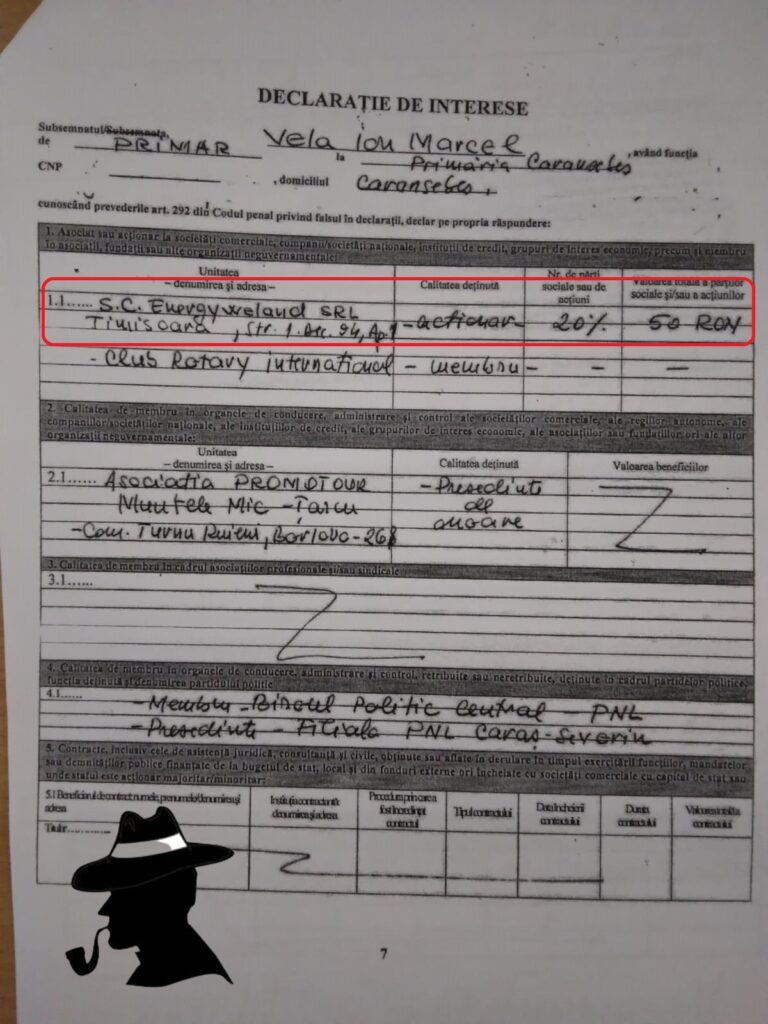 DECLARAȚIE DE INTERESE
Subsemnatul/Subsemnata, Vela Ion Marcel , având funcția
de PRIMAR la Primăria Caransebeș
CNP , domiciliul Caransebeș,
cunoscând prevederile art. 292 din Codul penal privind falsul în declarații, declar pe propria răspundere:
1. Asociat sau acționar la societăți comerciale, companii/societăți naționale, instituții de credit, grupuri de interes economic, precum și membru
în asociații, fundații sau alte organizații neguvernamentale:
Unitatea
– denumirea și adresa –
Calitatea deținută
Nr. de părți
sociale sau de
acțiuni
Valoarea totală a părților
sociale și/sau a acțiunilor
1.1...... S.C. Energyweland SRL
Timisoara, Str. 1. Dec. 94, Ap 1 – actionar – 20% 50 RON
- Club Rotary international – membru – – –
2. Calitatea de membru în organele de conducere, administrare și control ale societăților comerciale, ale regiilor autonome, ale
companiilor/societăților naționale, ale instituțiilor de credit, ale grupurilor de interes economic, ale asociațiilor sau fundațiilor ori ale altor
organizații neguvernamentale:
Unitatea
– denumirea și adresa –
Calitatea deținută
Valoarea beneficiilor
2.1...... Asociatia PROMOTOUR – Presedinte
Muntele Mic – Tarcu de
– Com. Turnu Ruieni, Borlova – 268 onoare
3. Calitatea de membru în cadrul asociațiilor profesionale și/sau sindicale
3.1......
4. Calitatea de membru în organele de conducere, administrare și control, retribuite sau neretribuite, deținute în cadrul partidelor politice,
funcția deținută și denumirea partidului politic
4.1...... – Membru – Biroul Politic Central – PNL
– Presedinte – Filiala PNL Caraș-Severin
5. Contracte, inclusiv cele de asistență juridică, consultanță și civile, obținute sau aflate în derulare în timpul exercitării funcțiilor, mandatelor
sau demnităților publice finanțate de la bugetul de stat, local și din fonduri externe ori încheiate cu societăți comerciale cu capital de stat sau
unde statul este acționar majoritar/minoritar:
5.1 Beneficiarul de contract: numele, prenumele/denumirea și
adresa
Instituția contractantă:
denumirea și adresa
Procedura prin care a
fost încredințat
contractul
Tipul contractului
Data încheierii
contractului
Durata
contractului
Valoarea totală a
contractului
Titular............
7